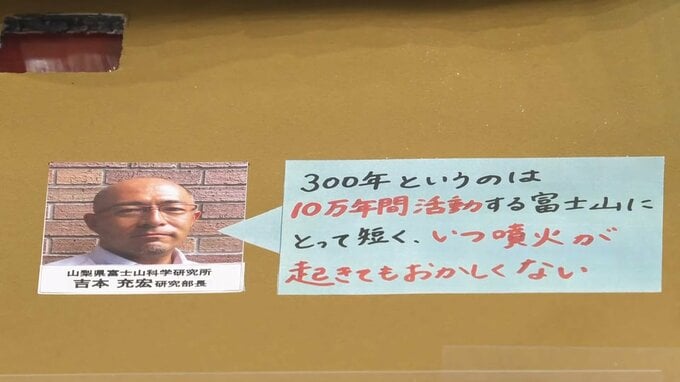 山梨県富士山科学研究所
吉本 充宏 研究部長
300年というのは
10万年間活動する富士山に
とって短く、いつ噴火が
起きてもおかしくない